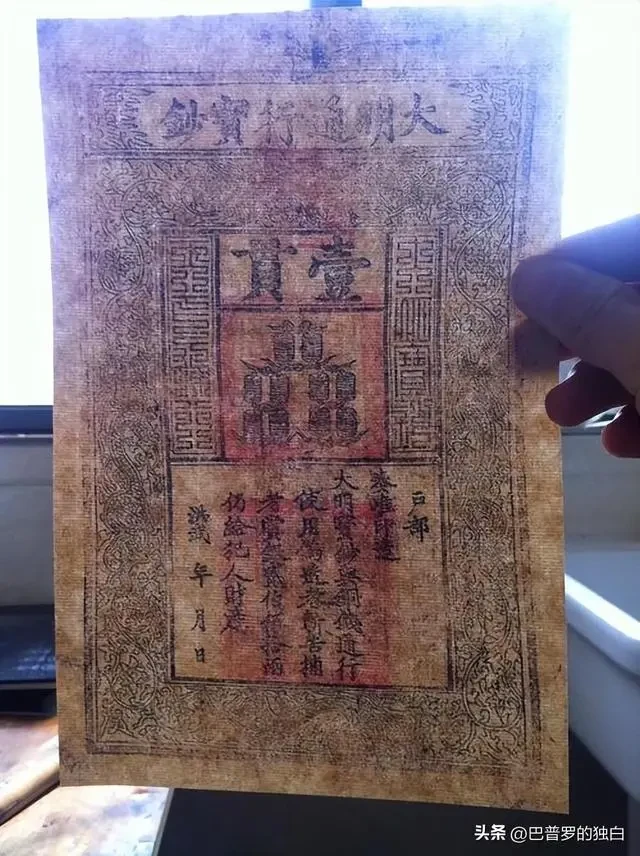 大明通行寶鈔
壹貫
戸部
奏准印造
大明寶鈔與銅錢通行
使用偽造者斬告捕
者賞銀貳佰伍拾兩
仍給犯人財產
洪武 年 月 日
头条 @巴普罗的独白